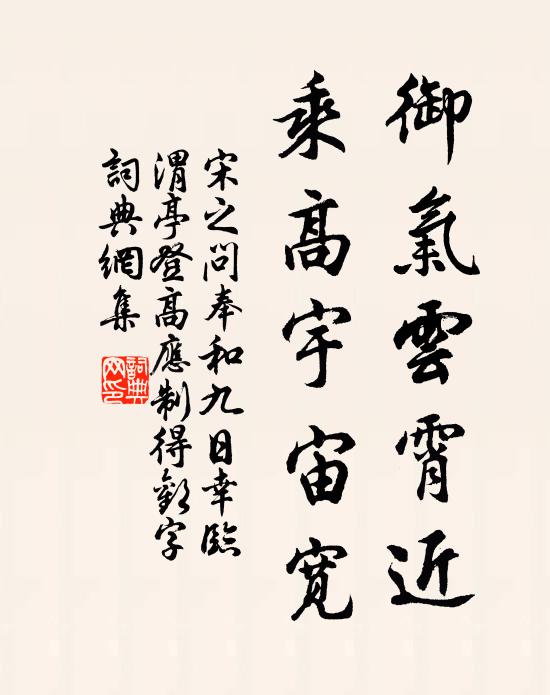 御氣雲霄近
乘高宇宙寬
宋之問奉和九日幸臨
渭亭登高應制得歡字
詞典網集
詞典
网印